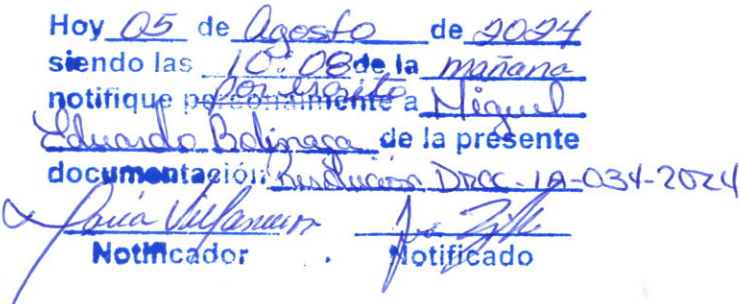 Hoy 05 de Agosto de 2024
siendo las 10:08 de la mañana
notifique personalmente por escrito a Miguel
Eduardo Bolinaga de la presente
documentación Resolución DRCC-IA-034-2024
Notificador . Notificado